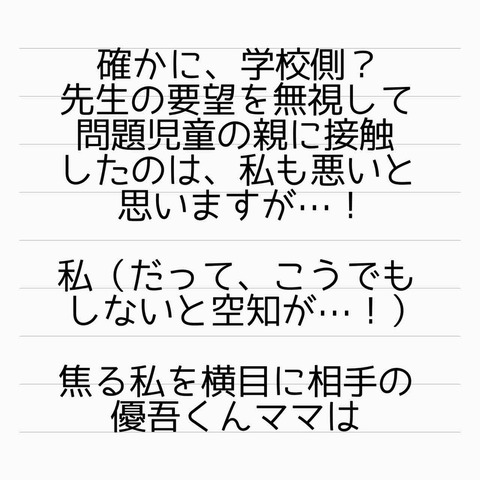 確かに、学校側？
先生の要望を無視して
問題児童の親に接触
したのは、私も悪いと
思いますが…！
私（だって、こうでも
しないと空知が…！）
焦る私を横目に相手の
優吾くんママは